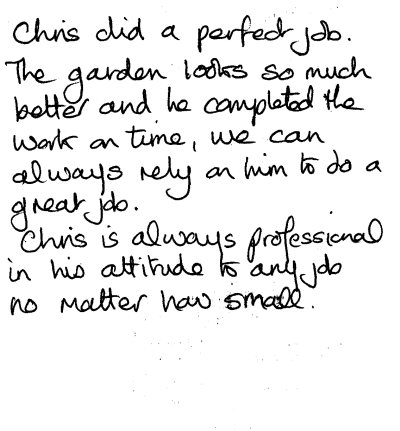 Chris did a perfect job.
The garden looks so much
better and he completed the
work on time, we can
always rely on him to do a
great job.
Chris is always professional
in his attitude to any job
no matter how small.